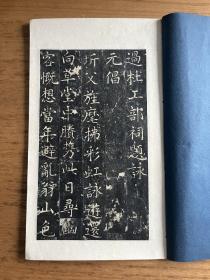 過杜工部祠題詠
元倡
圻父旌麾拂彩虹詠遊還
向草堂中賸携
日尋幽
客慨想當年避亂翁山色